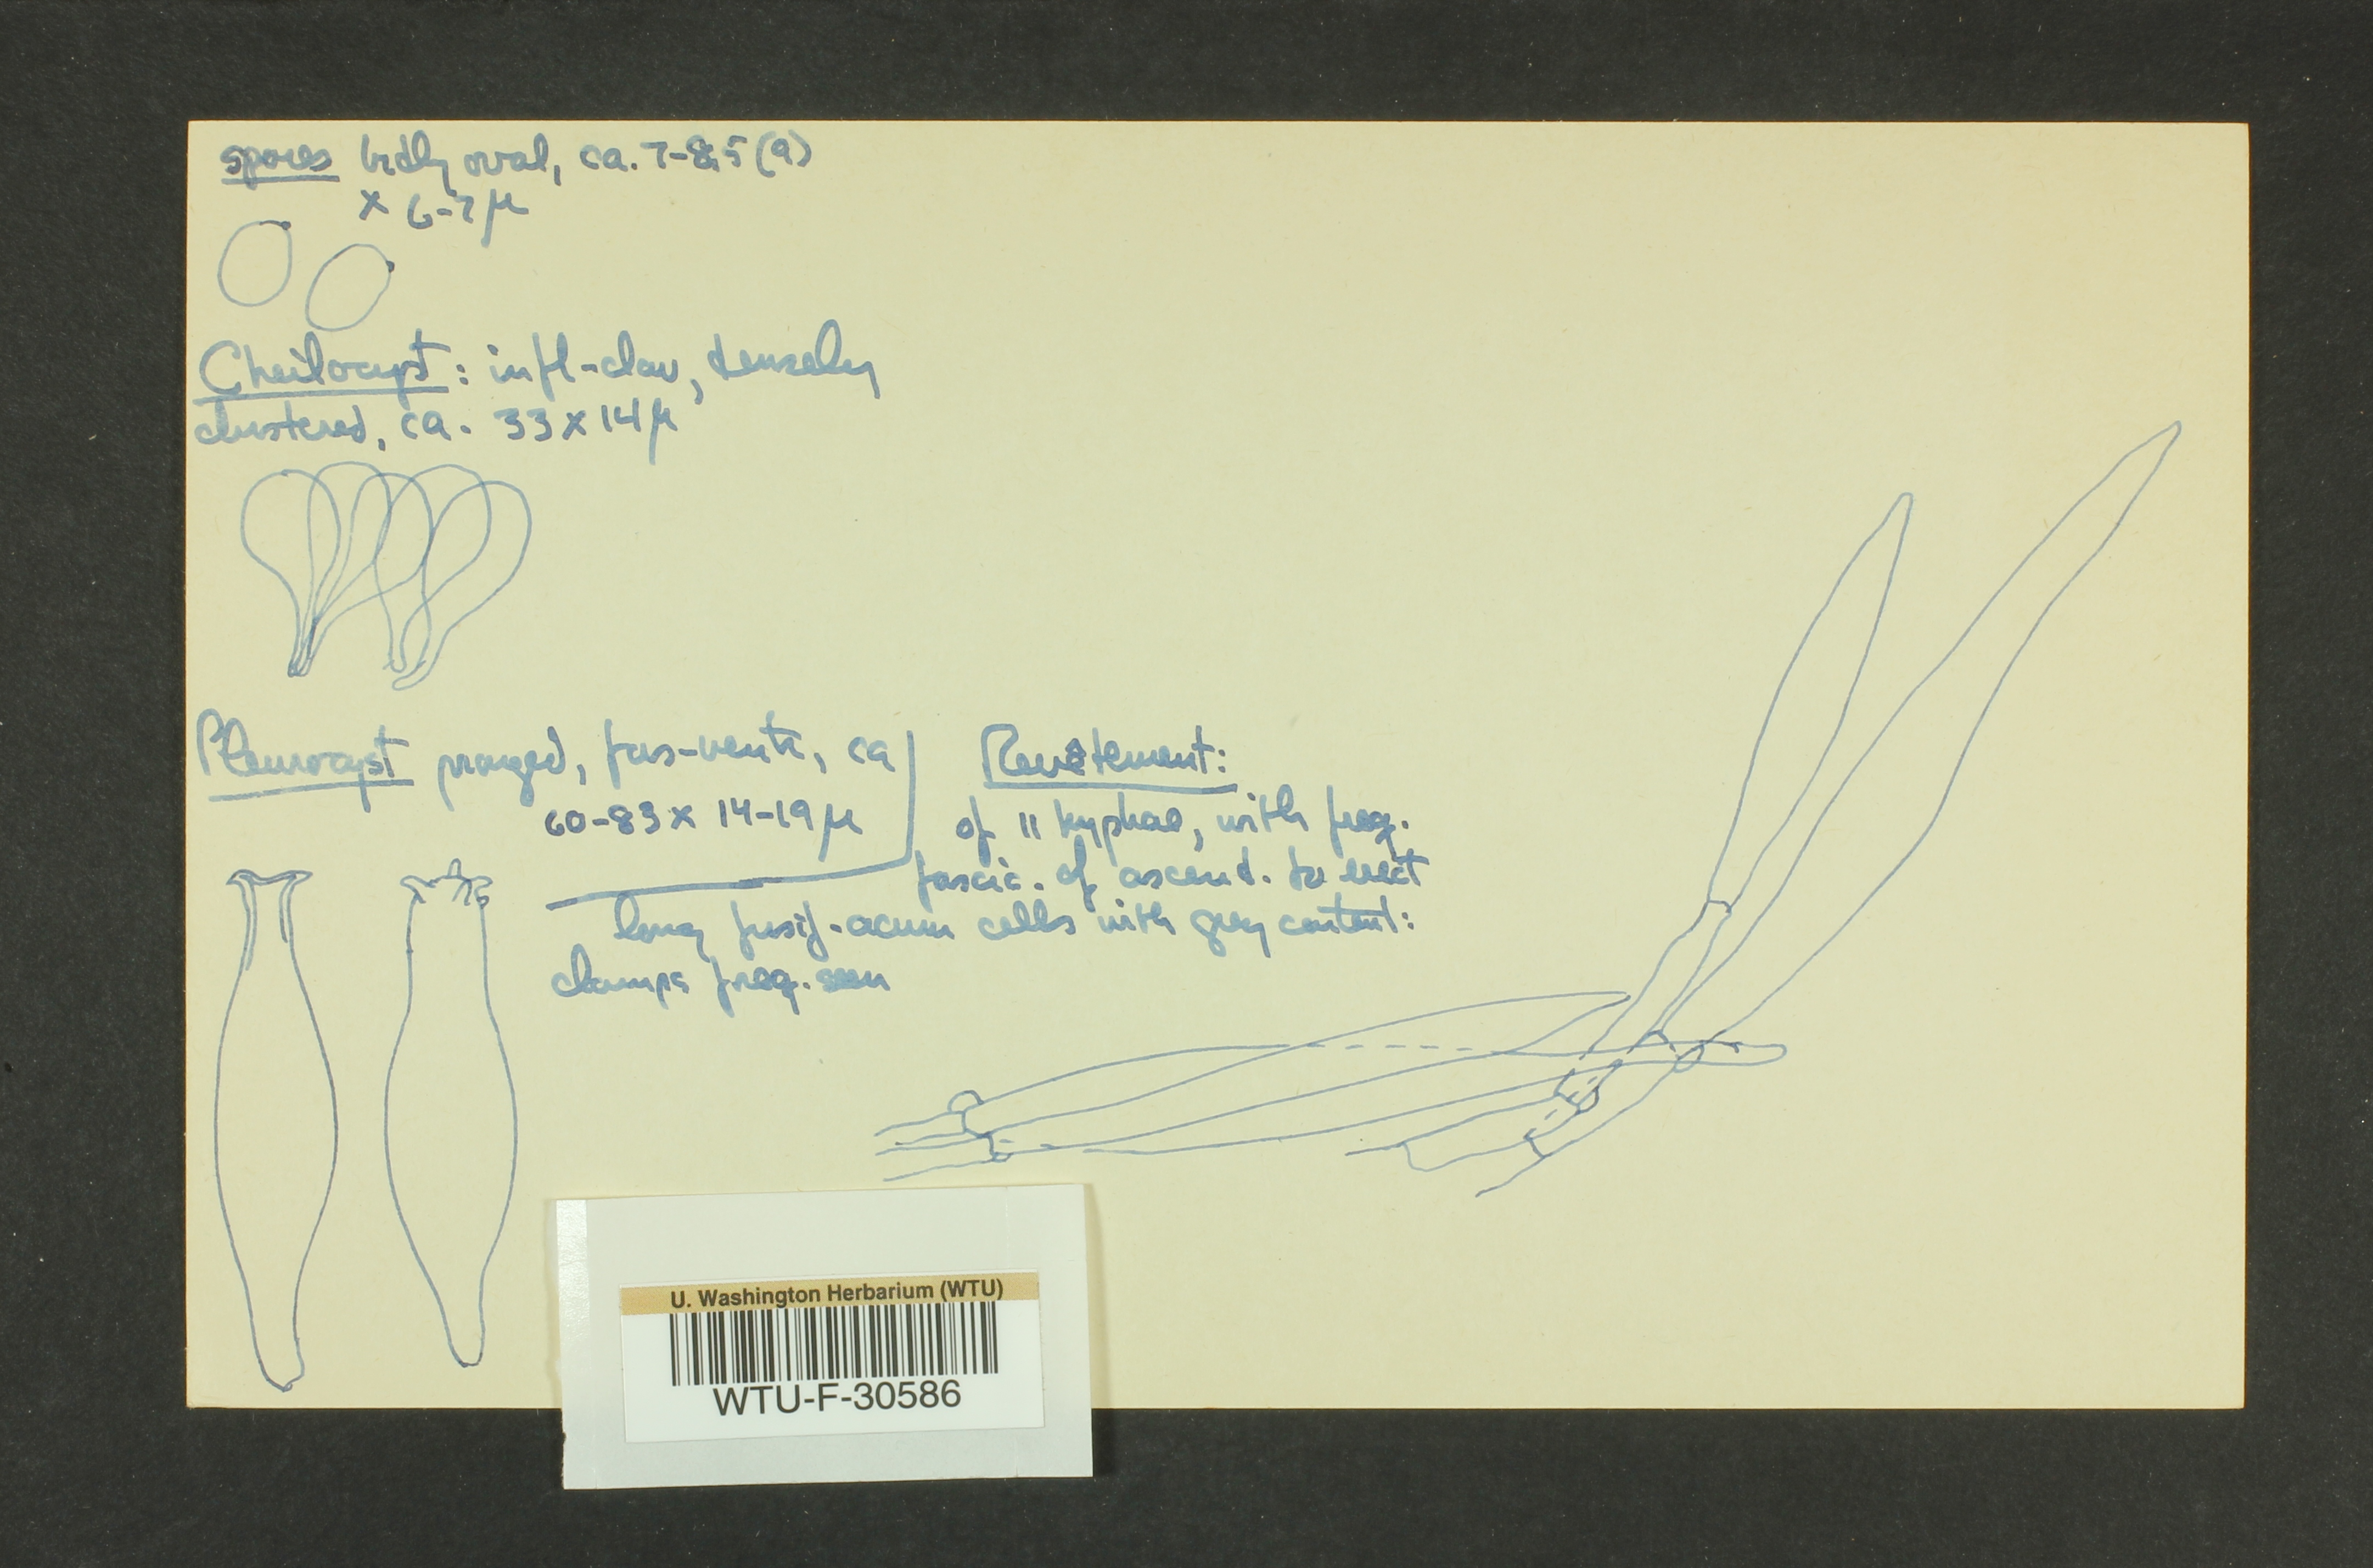 spores brdly oval, ca. 7-8.5 (9)
x 6-7 µ
Cheilocyst: infl-clav, densely
clustered, ca. 33 x 14 µ
Pleurocyst pronged, fus-ventr, ca
60-83 x 14-19 µ
Revêtement:
of || hyphae, with freq.
fascic. of ascend. to erect
long fusif-acum cells with grey content:
clamps freq. seen
U. Washington Herbarium (WTU)
WTU-F-30586